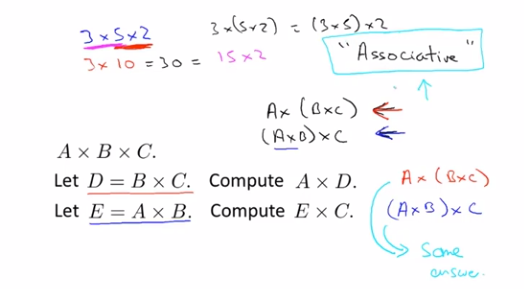 3 × 5 × 2
3×(5×2) = (3×5)×2
3 × 10 = 30 = 15 × 2
"Associative"
A × (B×C)
(A×B)×C
A × B × C.
Let D = B × C. Compute A × D.
Let E = A × B. Compute E × C.
A × (B×C)
(A×B) × C
Same
answer.